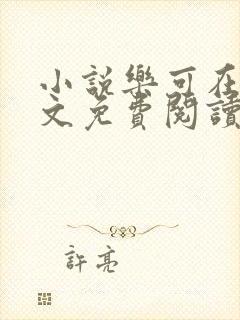 小說樂可在
文免費閱讀
許亮